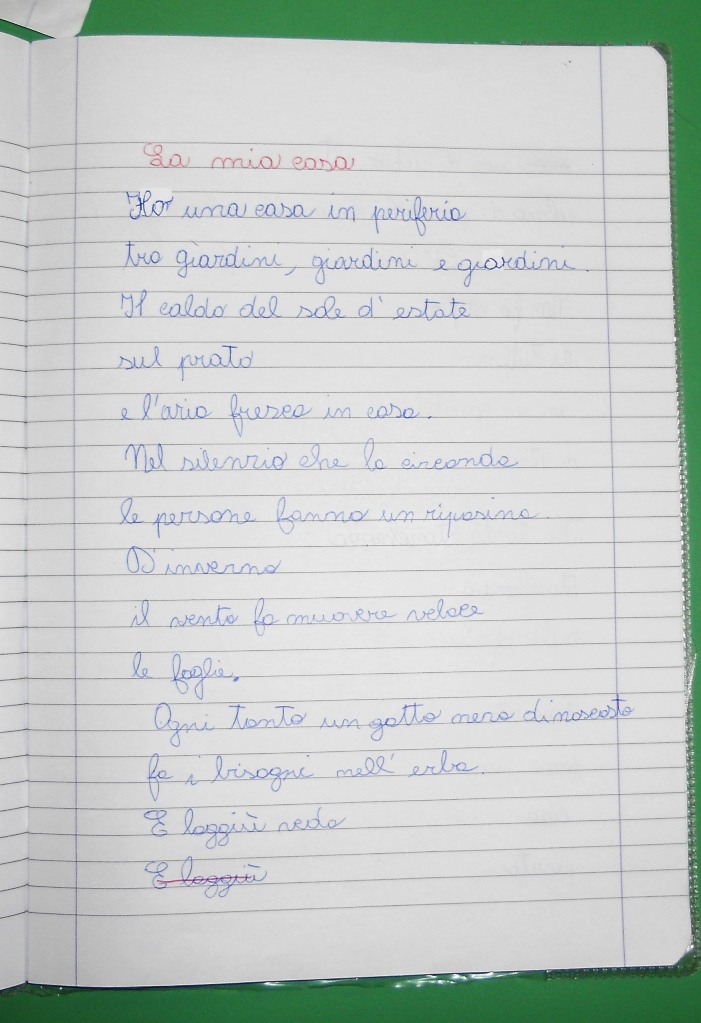 La mia casa
Ho una casa in periferia
tra giardini, giardini e giardini.
Il caldo del sole d'estate
sul prato
e l'aria fresca in casa.
Nel silenzio che la circonda
le persone fanno un riposino.
D'inverno
il vento fa muovere veloce
le foglie.
Ogni tanto un gatto nero dinascosto
fa i bisogni nell'erba.
E laggiù vedo
E laggiù